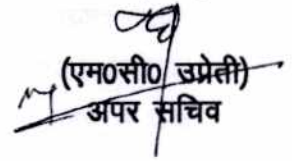 (एम0सी0 उप्रेती)
अपर सचिव